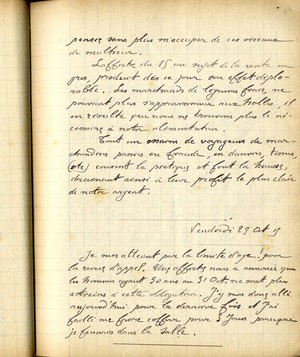 pensez sans plus m'occuper de ces oiseaux
de malheur.
L'affiche du 15 au sujet de la vente en
gros, produit dès ce jour son effet déplo-
rable. Les marchands de légumes frais, ne
pouvant plus s'approvisionner aux halles, il
en résulte que nous ne trouvons plus le né-
cessaire à notre alimentation.
Tout un essaim de voyageurs de mar-
chandises passés en fraude, en denrées,
(etc) courent la pratique et font la hausse,
drainant ainsi à leur profit le plus clair
de notre argent.
Vendredi 29 Oct 15
Je me alleint par la limite d'âge! pour
la revue d'appel. Une affiche nous a annoncé que
les hommes ayant 50 ans au 31 Oct. ne sont plus
astreints à cette obligation. J'y suis donc allé
aujourd'hui pour la dernière fois et j'ai
failli me faire coffrer pour 3 jours parceque
je fumais dans la salle.